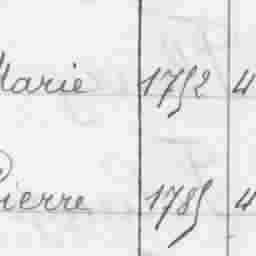 Marie 1752 4
Pierre 1785 4